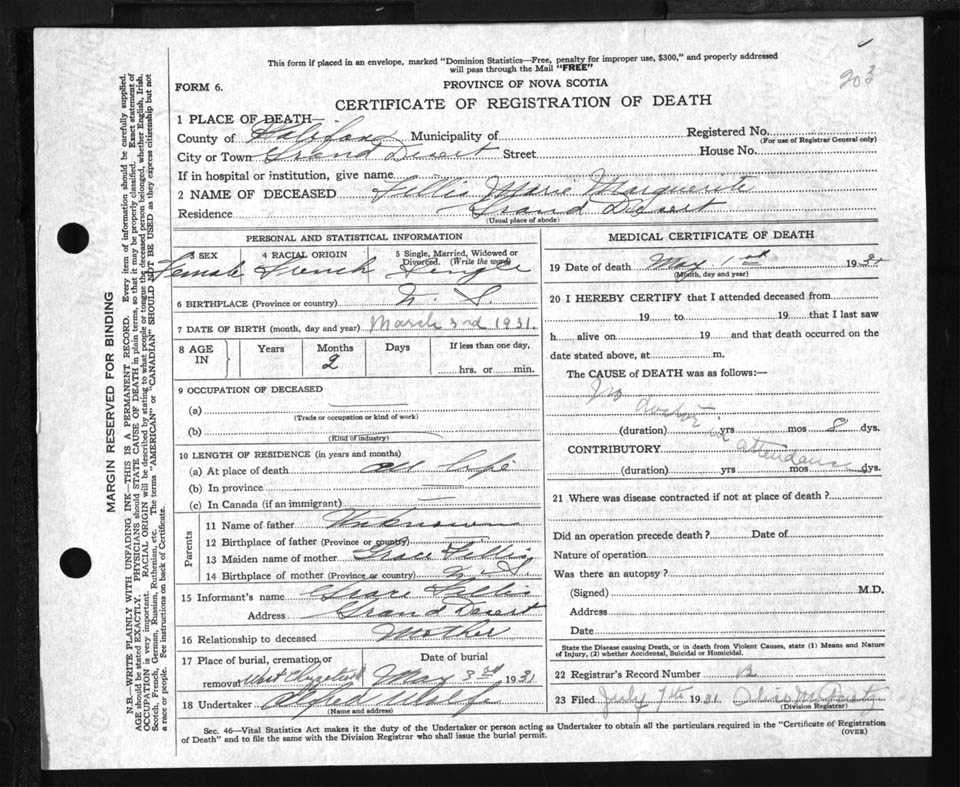 This form if placed in an envelope, marked "Dominion Statistics—Free, penalty for improper use, $300," and properly addressed
will pass through the Mail "FREE"
203
FORM 6.
PROVINCE OF NOVA SCOTIA
CERTIFICATE OF REGISTRATION OF DEATH
1 PLACE OF DEATH—
County of Halifax Municipality of Registered No.
(For use of Registrar General only)
City or Town Grand Desert Street House No.
If in hospital or institution, give name
2 NAME OF DECEASED Fellis Marie Marguerite
Residence Grand Desert
(Usual place of abode)
PERSONAL AND STATISTICAL INFORMATION
3 SEX 4 RACIAL ORIGIN 5 Single, Married, Widowed or Divorced. (Write the word)
Female French Single
6 BIRTHPLACE (Province or country) N. S.
7 DATE OF BIRTH (month, day and year) March 3rd 1931.
8 AGE IN Years Months Days If less than one day,
2 hrs. or min.
9 OCCUPATION OF DECEASED
(a)
(Trade or occupation or kind of work)
(b)
(Kind of industry)
10 LENGTH OF RESIDENCE (in years and months)
(a) At place of death all life
(b) In province
(c) In Canada (if an immigrant)
Parents
11 Name of father Unknown
12 Birthplace of father (Province or country)
13 Maiden name of mother Grace Fellis
14 Birthplace of mother (Province or country) N. S.
15 Informant's name Grace Fellis
Address Grand Desert
16 Relationship to deceased Mother
17 Place of burial, cremation, or removal Date of burial
West Chezzetcook May 3rd 1931
18 Undertaker
(Name and address)
MEDICAL CERTIFICATE OF DEATH
19 Date of death May 1st 193
(Month, day and year)
20 I HEREBY CERTIFY that I attended deceased from
19 to 19 that I last saw
h alive on 19 and that death occurred on the
date stated above, at m.
The CAUSE of DEATH was as follows:—
No doctor in attendance
(duration) yrs mos 8 dys.
CONTRIBUTORY
(duration) yrs mos dys.
21 Where was disease contracted if not at place of death?
Did an operation precede death? Date of
Nature of operation
Was there an autopsy?
(Signed) M.D.
Address
Date
State the Disease causing Death, or in death from Violent Causes, state (1) Means and Nature
of Injury, (2) whether Accidental, Suicidal or Homicidal.
22 Registrar's Record Number
23 Filed July 7th 1931.
(Division Registrar)
Sec. 46—Vital Statistics Act makes it the duty of the Undertaker or person acting as Undertaker to obtain all the particulars required in the "Certificate of Registration
of Death" and to file the same with the Division Registrar who shall issue the burial permit.
(OVER)
MARGIN RESERVED FOR BINDING
N.B.—WRITE PLAINLY WITH UNFADING INK—THIS IS A PERMANENT RECORD. Every item of information should be carefully supplied.
AGE should be stated EXACTLY. PHYSICIANS should STATE CAUSE OF DEATH in plain terms, so that it may be properly classified. Exact statement of
OCCUPATION is very important. RACIAL ORIGIN will be described by stating to what people or tongue the deceased person belonged, whether English, Irish,
Scotch, French, German, Russian, Ruthenian, etc. The terms "AMERICAN" or "CANADIAN" SHOULD NOT BE USED as they express citizenship but not
a race or people. See instructions on back of Certificate.